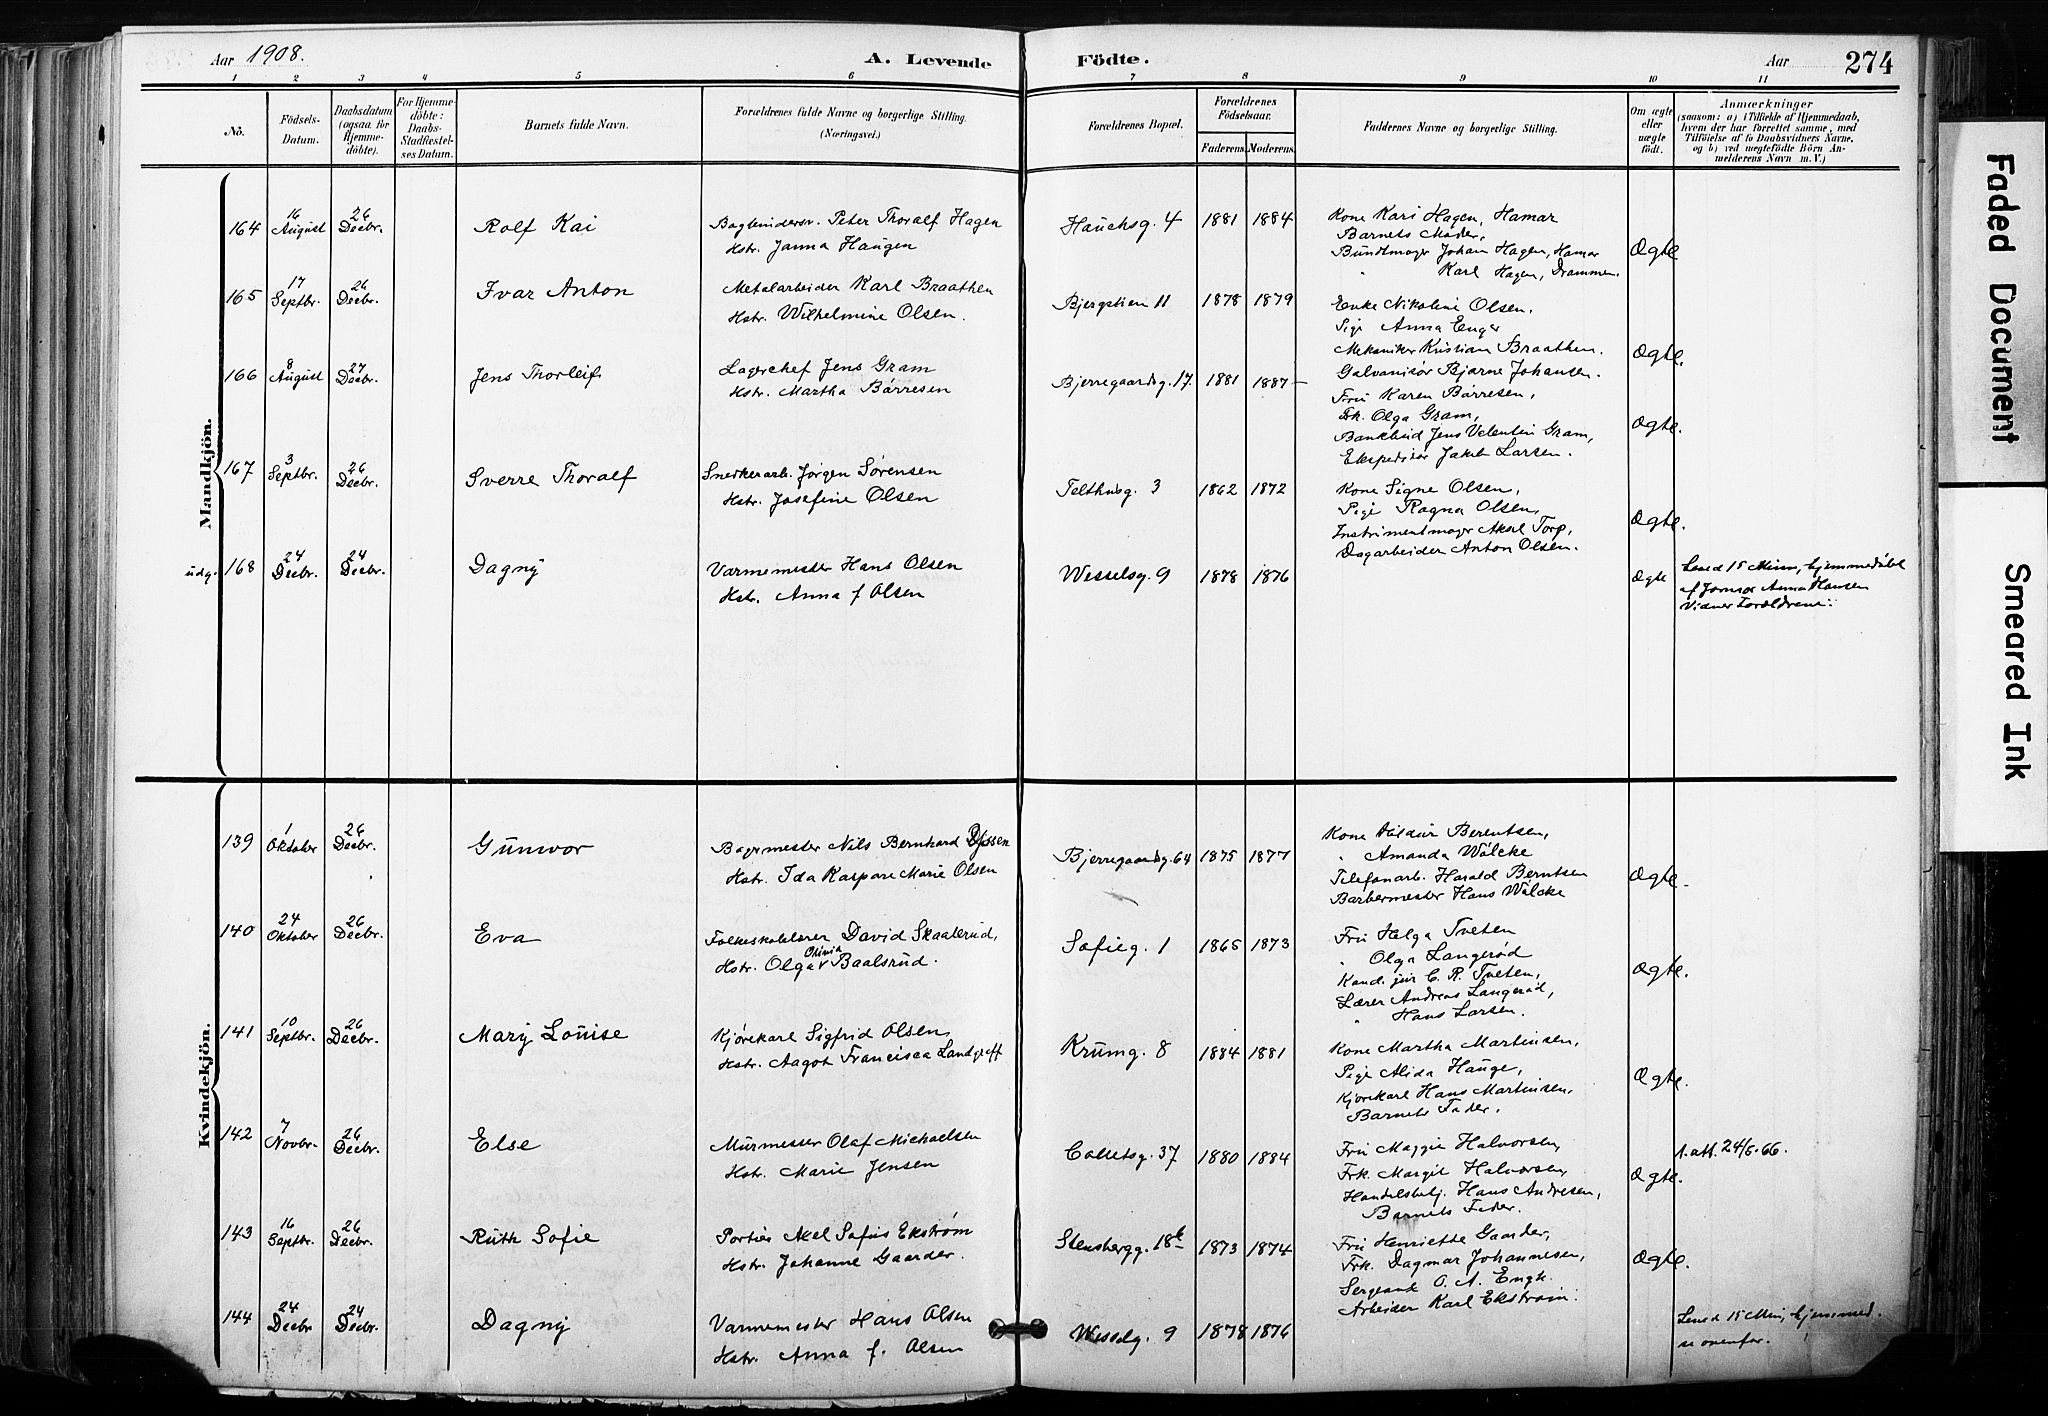 Aar 1908.
A. Levende Födte.
Aar
274
1 2 3 4 5 6 7 8 9 10 11
Nô.
Födsels-Datum.
Daabsdatum (ogsaa for Hjemme-döbte).
For Hjemme-döbte: Daabs-Stadfæstel-ses Datum.
Barnets fulde Navn.
Forældrenes fulde Navne og borgerlige Stilling.
(Næringsvei.)
Forældrenes Bopæl.
Forældrenes Födselsaar.
Faderens. Moderens.
Faddernes Navne og borgerlige Stilling.
Om ægte eller uægte födt.
Anmærkninger
(saasom: a) i Tilfælde af Hjemmedaab,
hvem der har forrettet samme, med
Tilföielse af to Daabsvidners Navne,
og b) ved uægtefödte Börn An-
melderens Navn m. V.)
Mandkjön.
164 16 August 26 Decbr. Rolf Kai
Peter Thoralf Hagen
Hstr. Janna Haugen
Hauchsg. 4 1881 1884
Kone Kari Hagen, Hamar
Barnets Moder,
Bundtmager Johan Hagen, Hamar
" Karl Hagen, Drammen.
Ægte
165 17 Septbr. 26 Decbr. Ivar Anton
Metalarbeider Karl Braathen
Hstr. Wilhelmine Olsen.
Bjergstien 11 1878 1879
Enke Nikoline Olsen.
Pige Anna Enger
Mekaniker Kristian Braathen.
Galvanisör Bjarne Johansen.
Ægte.
166 8 August 27 Decbr. Jens Thorleif
Lagerchef Jens Gram
Hstr. Martha Børresen
Bjerregaardsg. 17. 1881 1887
Fru Karen Børresen,
Frk. Olga Gram,
Bankbud Jens Valentin Gram,
Ekspeditør Jakob Larsen.
Ægte.
167 3 Septbr. 26 Decbr. Sverre Thoralf
Snedkerarb. Jørgen Sørensen
Hstr. Josefine Olsen
Telthusg. 3 1862 1872
Kone Signe Olsen,
Pige Ragna Olsen,
Instrumentmager Aksel Torp,
Dagarbeider Anton Olsen.
Ægte.
udg. 168 24 Decbr. 24 Decbr. Dagny
Varmemester Hans Olsen
Hstr. Anna f Olsen
Wesselsg. 9 1878 1876
Ægte
Leved 15 Minn, hjemmedøbt
af Jormor Anna Hansen
Vidner Forældrene
Kvindekjön.
139 1 Oktober 26 Decbr. Gunvor
Bagermester Nils Bernhard
Hstr. Ida Kaspara Marie Olsen
Bjerregaardsg. 64 1875 1877
Kone Hildur Berentsen,
" Amanda Wølcke
Telefonarb. Harald Berntsen
Barbermester Hans Wølcke
Ægte.
140 24 Oktober 26 Decbr. Eva
Folkeskolelærer David Skaalerud,
Hstr. Olga Olivia Baalsrud.
Sofieg. 1 1865 1873
Fru Helga Tveten
" Olga Langerød
Kand. jur C. R. Tveten,
Lærer Andreas Langerød,
" Hans Larsen.
Ægte.
141 10 Septbr. 26 Decbr. Mary Louise
Kjørekarl Sigfrid Olsen
Hstr. Aagot Francisca Landgreff
Krumg. 8 1884 1881
Kone Martha Martinsen,
Pige Alida Hauge,
Kjørekarl Hans Martinsen,
Barnets Fader.
Ægte.
142 7 Novbr. 26 Decbr. Else
Murmester Olaf Michaelsen
Hstr. Marie Jensen
Colletsg. 37 1880 1884
Fru Maggie Halvorsen,
Frk. Margit Halvorsen,
Handelsbetj. Hans Andresen,
Barnets Fader.
Ægte.
1. att. 24/5.66.
143 16 Septbr. 26 Decbr. Ruth Sofie
Portier Axel Sofus Ekstrøm
Hstr. Johanne Gaarder.
Stensbergg. 18b 1873 1874
Fru Henriette Gaarder,
Frk. Dagmar Johannesen,
Sergeant O. A. Engh.
Arbeider Karl Ekstrøm.
Ægte.
144 24 Decbr 24 Decbr. Dagny
Varmemester Hans Olsen
Hstr. Anna f. Olsen
Wesselsg. 9 1878 1876
Leved 15 Min, hjemmed.
se ovenfor.
Faded Document
Smeared Ink